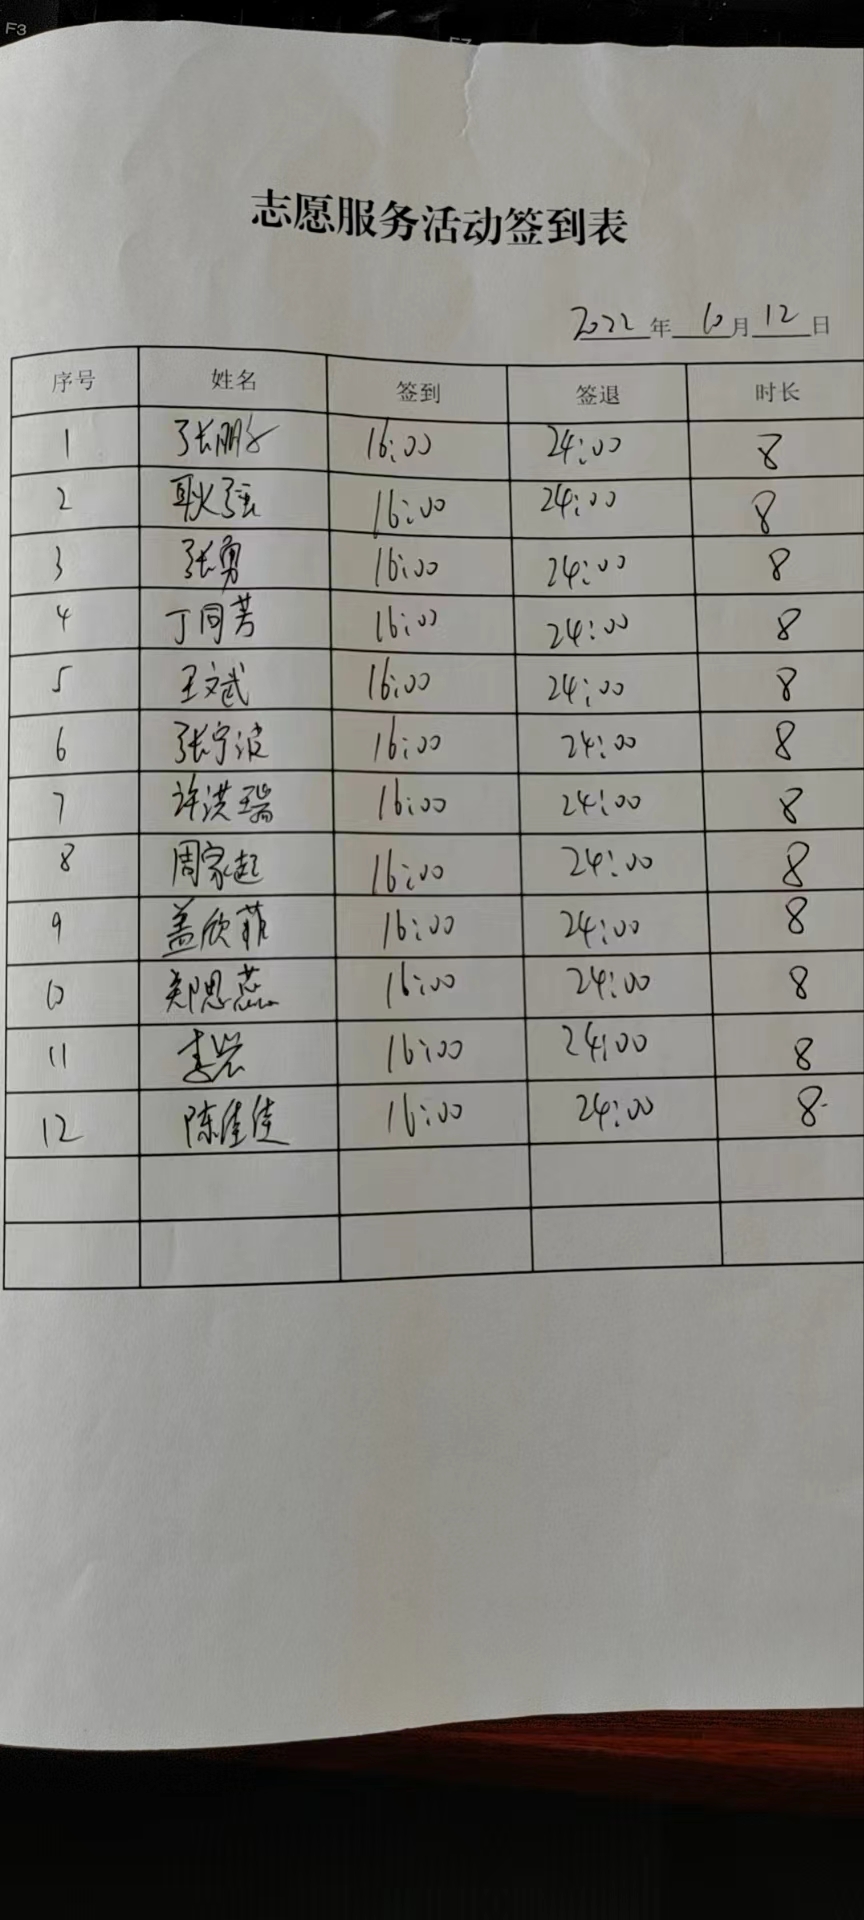 F3
志愿服务活动签到表
2022年10月12日
序号 姓名 签到 签退 时长
1 张鹏 16:00 24:00 8
2 耿强 16:00 24:00 8
3 张勇 16:00 24:00 8
4 丁同芳 16:00 24:00 8
5 王文武 16:00 24:00 8
6 张宁波 16:00 24:00 8
7 许洪瑞 16:00 24:00 8
8 周家起 16:00 24:00 8
9 盖欣菲 16:00 24:00 8
10 郑思蕊 16:00 24:00 8
11 李岩 16:00 24:00 8
12 陈佳佳 16:00 24:00 8